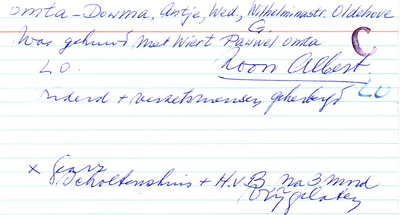 Omta-Dowma, Antje, Wed, Wilhelminastr. Oldehove
G.
Was gehuwd met Wiert Pauwel Omta
C
L O.
Zoon Albert.
LO
+ verzetsmensen geherbergd
x
Scholtenshuis + H.v.B. na 3 mnd
vrijgelaten